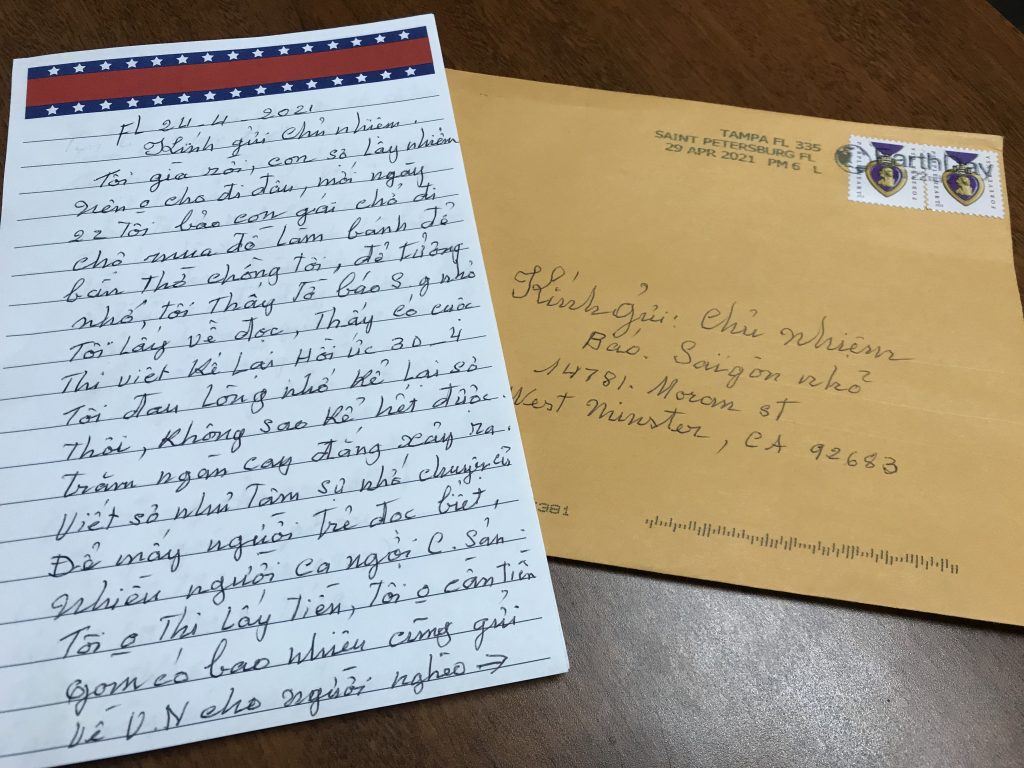 FL 24-4-2021
Kính gửi chủ nhiệm.
Tôi già rồi, con sợ lây nhiễm
nên o cho đi đâu, mới ngày
22 Tôi bảo con gái chở đi
chợ mua đồ làm bánh để
bàn Thờ chồng tôi, để tưởng
nhớ, tôi Thấy Tờ báo S g nhỏ
Tôi lấy về đọc, Thấy có cuộc
Thi viết Kể Lại Hồi ức 30-4
Tôi đau lòng nhớ kể lại sơ
Thôi, không sao kể hết được.
Trăm ngàn cay đắng xảy ra.
Viết sơ như Tâm sự nhớ chuyện cũ
Để mấy người Trẻ đọc biết,
nhiều người ca ngợi C. Sản.
Tôi o Thi lấy Tiền, Tôi o cần tiền
gom có bao nhiêu cũng gửi
về V.N cho người nghèo →
TAMPA FL 335
SAINT PETERSBURG FL
29 APR 2021 PM 6 L
Kính Gửi: Chủ nhiệm
Báo. Saigòn nhỏ
14781. Moran st
West Minster, CA 92683